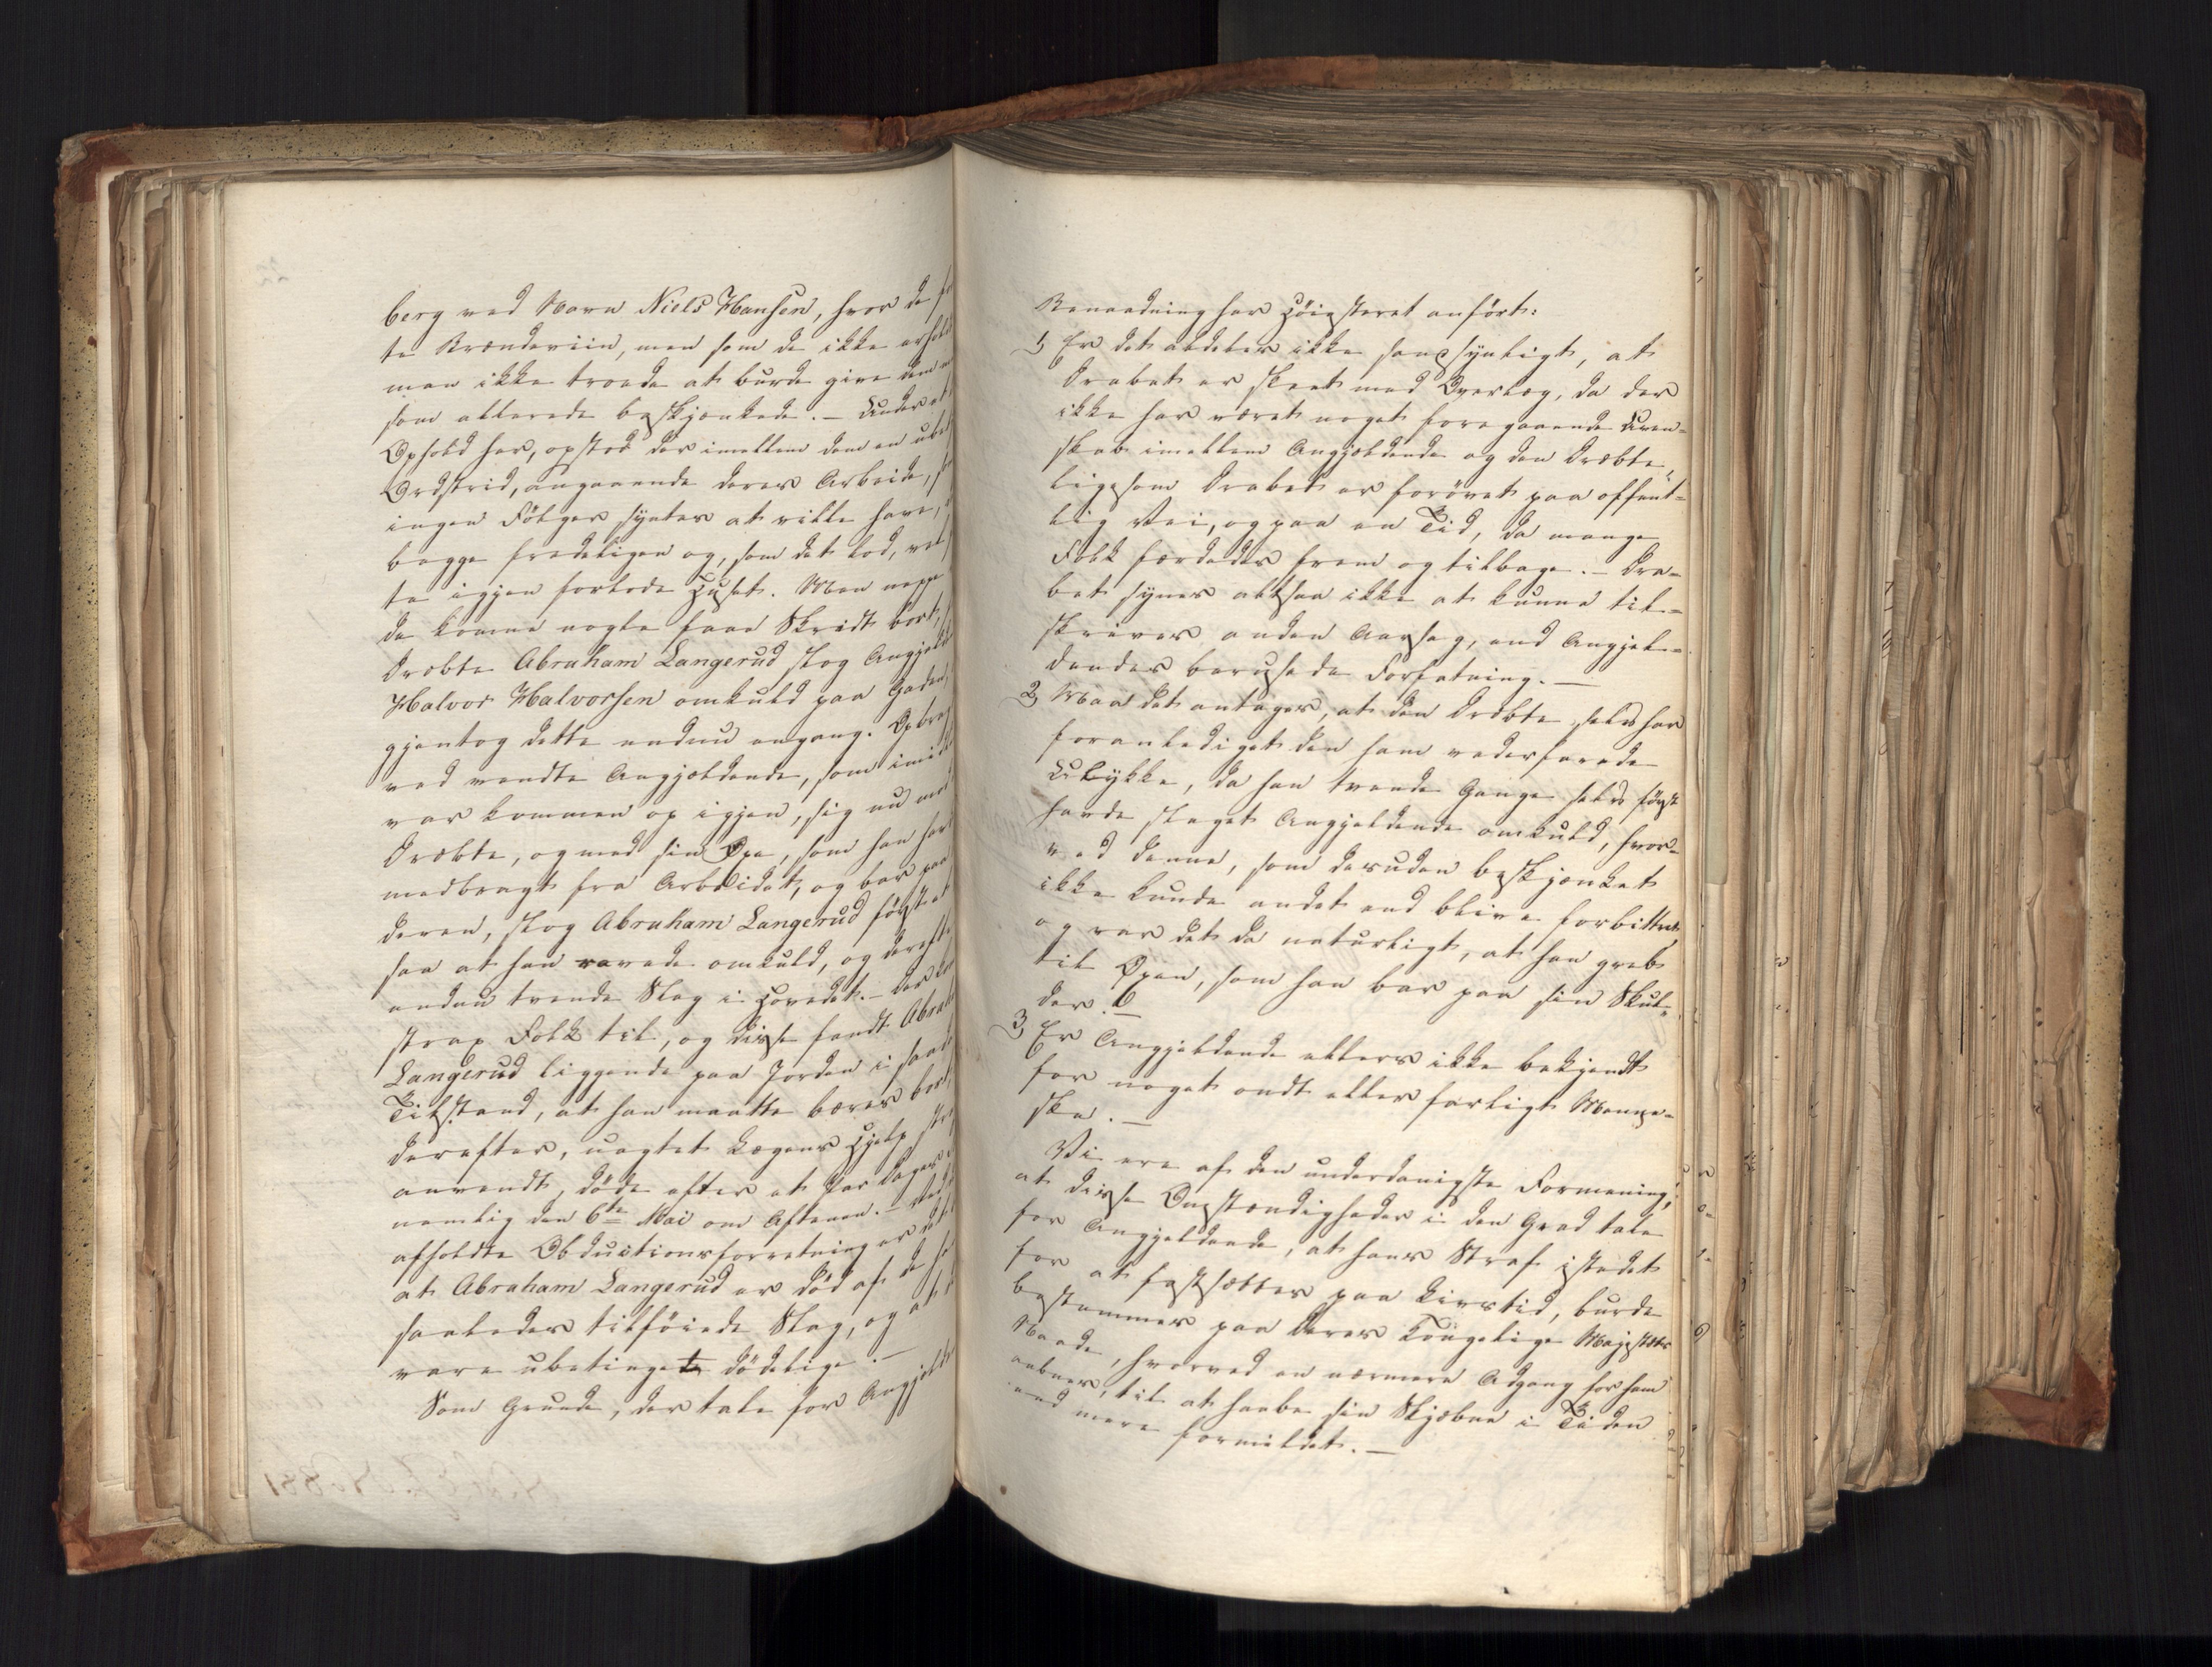 berg ved Navn Niels Hansen, hvor de
te Brændeviin, men som de ikke erholdt
man ikke troede at burde give dem
som allerede beskjænkede. – Under et
Ophold her, opstod der imellem dem en ubet
Ordstrid, angaaende deres Arbeide,
ingen Fölger syntes at ville have,
begge fredeligen og, som det lod, vel
te igjen forlode Huset. Men neppe
da komne nogle faae Skridt bort,
Dræbte Abraham Langerud slog Angjeld
Halvor Halvorsen omkuld paa Gaden,
gjentog dette endnu engang. Opbragt
ved vendte Angjeldende, som imidl
var kommen op igjen, sig nu mod
Dræbte, og med sin Öxe, som han hav
medbragt fra Arbeidet, og bar paa
deren, slog Abraham Langerud först et
saa at han ravede omkuld, og dereft
endnu trende Slag i Hovedet. – Der kom
strax Folk til, og disse fandt Abrah
Langerud liggende paa Jorden i saad
Tilstand, at han maatte bæres bort,
derefter, uagtet Lægens Hjelp
anvendt, döde efter et Par Dages
nemlig den 6te Mai om Aftenen. – Ved
afholdte Obductionsforretning er
at Abraham Langerud er död af de
saaledes tilföiede Slag, og at
vare ubetingete dödelige. –
Som Grunde, der tale for Angjelde
Benaadning har Höiesteret anfört:
1, Er det aldeles ikke sandsynligt, at
Drabet er skeet med Overlæg, da der
ikke har været noget foregaaende Uven-
skab imellem Angjeldende og den Dræbte,
ligesom Drabet er forövet paa offent-
lig Vei, og paa en Tid, da mange
Folk færdedes frem og tilbage. – Dra-
bet synes altsaa ikke at kunne til-
skrives anden Aarsag, end Angjel-
dendes berusede Forfatning. –
2, Maa det antages, at den Dræbte selv har
foranlediget den ham vederfarede
Ulykke, da han tvende Gange selv först
havde slaget Angjeldende omkuld, hvor-
ved denne, som desuden beskjænket
ikke kunde andet end blive forbittret
og var det da naturligt, at han greb
til Öxen, som han bar paa sin Skul-
der. –
3, Er Angjeldende ellers ikke bekjendt
for noget ondt eller farligt Menne-
ske. –
Vi ere af den underdanigste Formening,
at disse Omstændigheder i den Grad tale
for Angjeldende, at hans Straf istedet
for at fastsættes paa Livstid, burde
bestemmes paa Deres Kongelige Majestæts
Naade, hvorved en nærmere Adgang for ham
aabnes, til at haabe sin Skjæbne i Tiden
end mere formildet. –